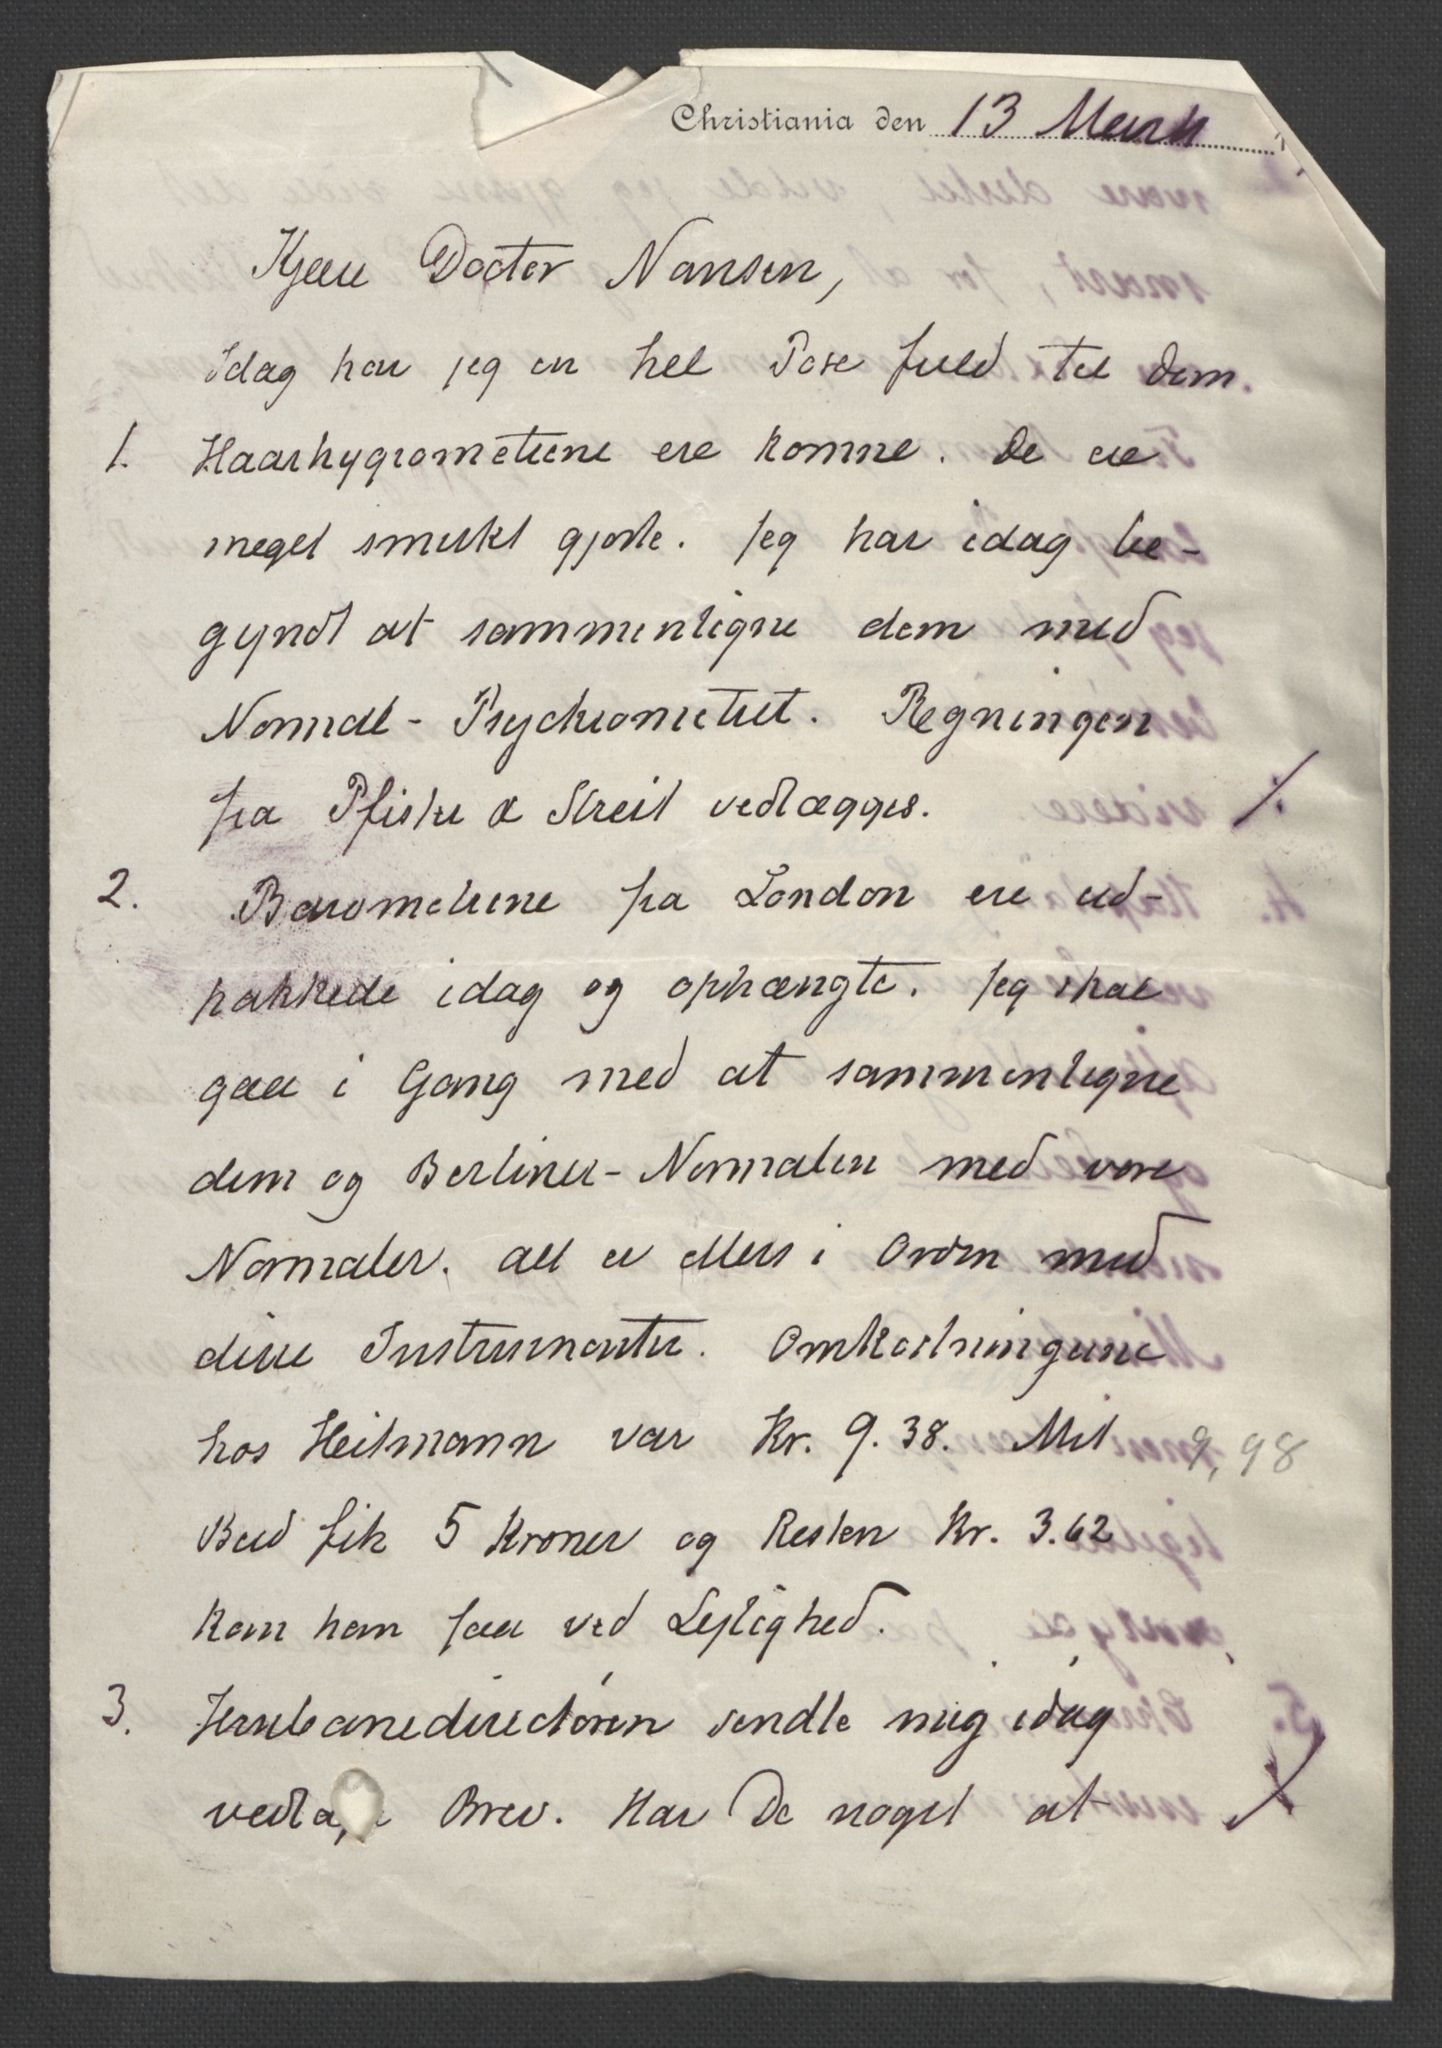 Christiania den 13 Marts
Kjære Doctor Nansen,
Idag har jeg en hel Pose fuld til Dem.
1. Haarhygrometrene ere komne. De ere
meget smukt gjorte. Jeg har idag be-
gyndt at sammenligne dem med
Normal-Psychrometret. Regningen
fra Pfister & Streit vedlægges. ./.
2. Barometrene fra London ere ud-
pakkede idag og ophængte. Jeg skal
gaa i Gang med at sammenligne
dem og Berliner-Normalen med vore
Normaler. Alt er ellers i Orden med
disse Instrumenter. Omkostningerne
hos Heitmann var Kr. 9.38. Mit 9,98
Bud fik 5 Kroner og Resten Kr. 3.62
kan han faa ved Lejlighed.
3. Jernbanedirectøren sendte mig idag
Brev. Har De noget at